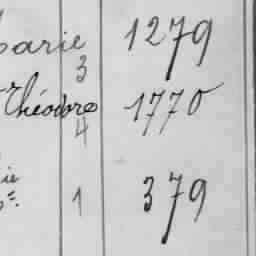 parie 1279
3
Théodore 1770
4
ie
1 379